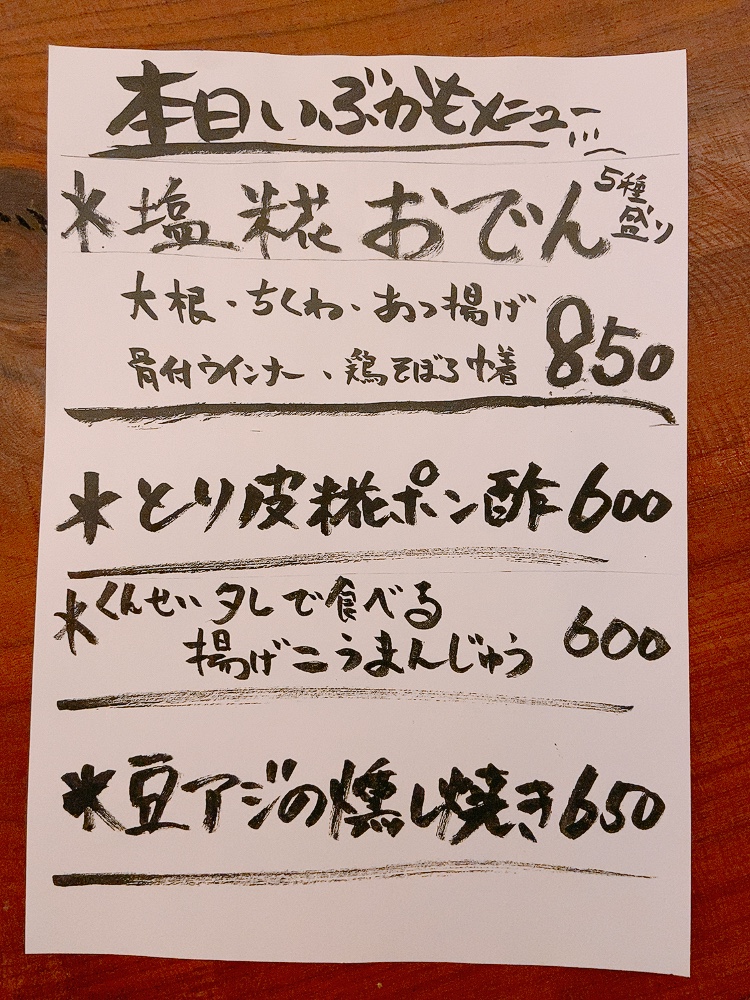 本日いぶかもメニュー
*塩糀おでん 5種盛り
大根・ちくわ・あつ揚げ
骨付ウインナー、鶏そぼろ巾着 850
*とり皮糀ポン酢 600
*くんせいタレで食べる
揚げこうまんじゅう 600
*豆アジの燻し焼き 650